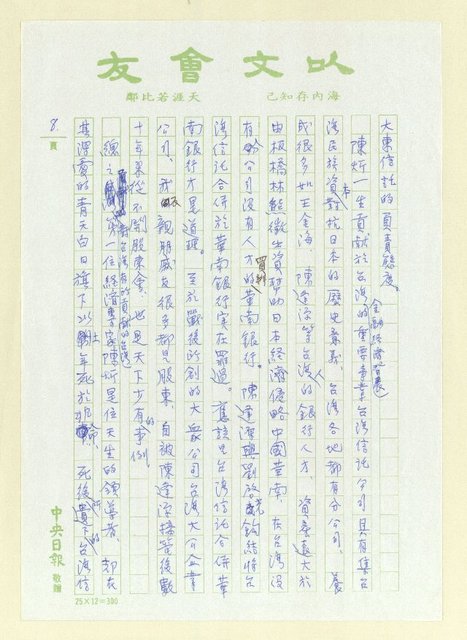 以文會友
海內存知己 天涯若比鄰
大東信託的負責態度。
陳炘一生貢獻於台灣的金融經濟發展重要者台灣信託公司具有集台
灣民族資本對抗日本的歷史意義、台灣各地都有分公司、養
成很多如王金海、陳逢源等台灣人的銀行人才、資養遠大於
由板橋林熊徵出資幫助日本經濟侵略中國華南、在台灣沒
有分公司沒有人才的華南銀行。陳逢源與劉啓光鈎結將台
灣信託合併於華南銀行实在罪過。應該是台灣信託合併華
南銀行才是道理。至於戰後所創的大公企業
公司、我親朋戚友很多都是股東、自被陳逢源接管後數
十年來從不開股東會、也是天下少有的事例
總之第一位經濟專家陳炘是位天生的領導者、却在
其深愛的青天白日旗下 年死於非命、死後遺下的台灣信
8. 頁
中央日報 敬贈
25×12=300